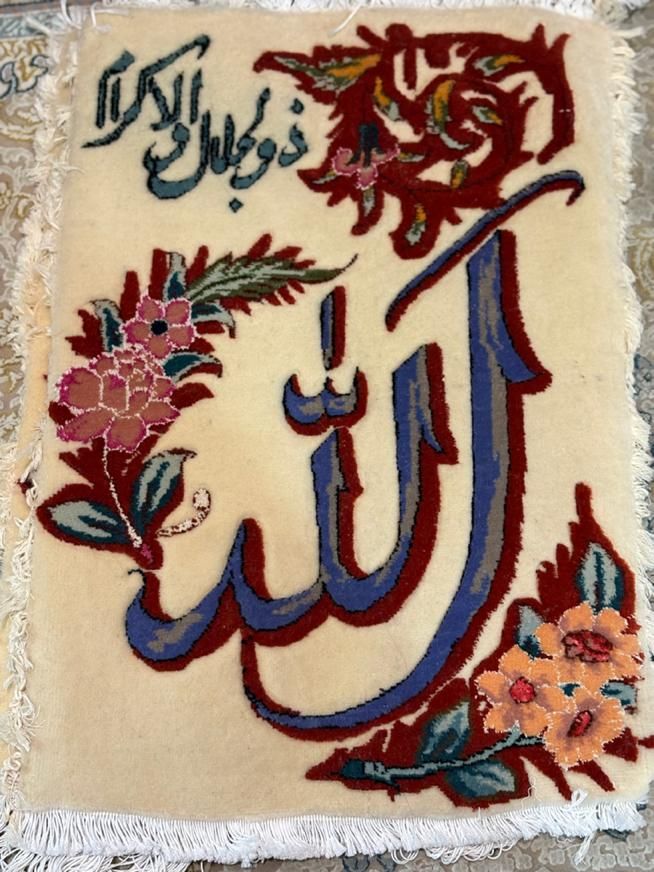 ذو الجلال و الاکرام
الله